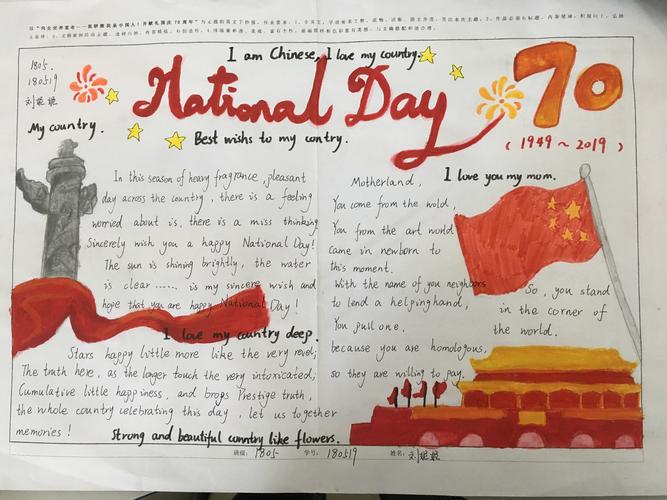 1805.
180519
My country.
I am Chinese, I love my country.
National Day
70
(1949~2019)
Best wishs to my contry.
I love you my mom.
In this season of heavy fragrance, pleasant
day across the country, there is a feeling
worried about is, there is a miss thinking
Sincerely wish you a happy National Day!
The sun is shining brightly, the water
is clear ...... is my sincere wish and
hope that you are happy National Day!
I love my country deep.
Stars happy little more like the very revel;
The truth here, as the longer touch the very intoxicated;
Cumulative little happiness, and brogs Prestige truth,
the whole country celebrating this day, let us together
memories!
Strong and beautiful conntry like flowers.
Motherland,
You come from the wold,
You from the art world
came in newborn to
this moment.
With the name of you neighbors
to lend a helpinghand,
You pull one.
because you are homologous,
so they are willing to pay.
So, you stand
in the corner of
the world.
班级: 1805 学号: 180519 姓名: 刘